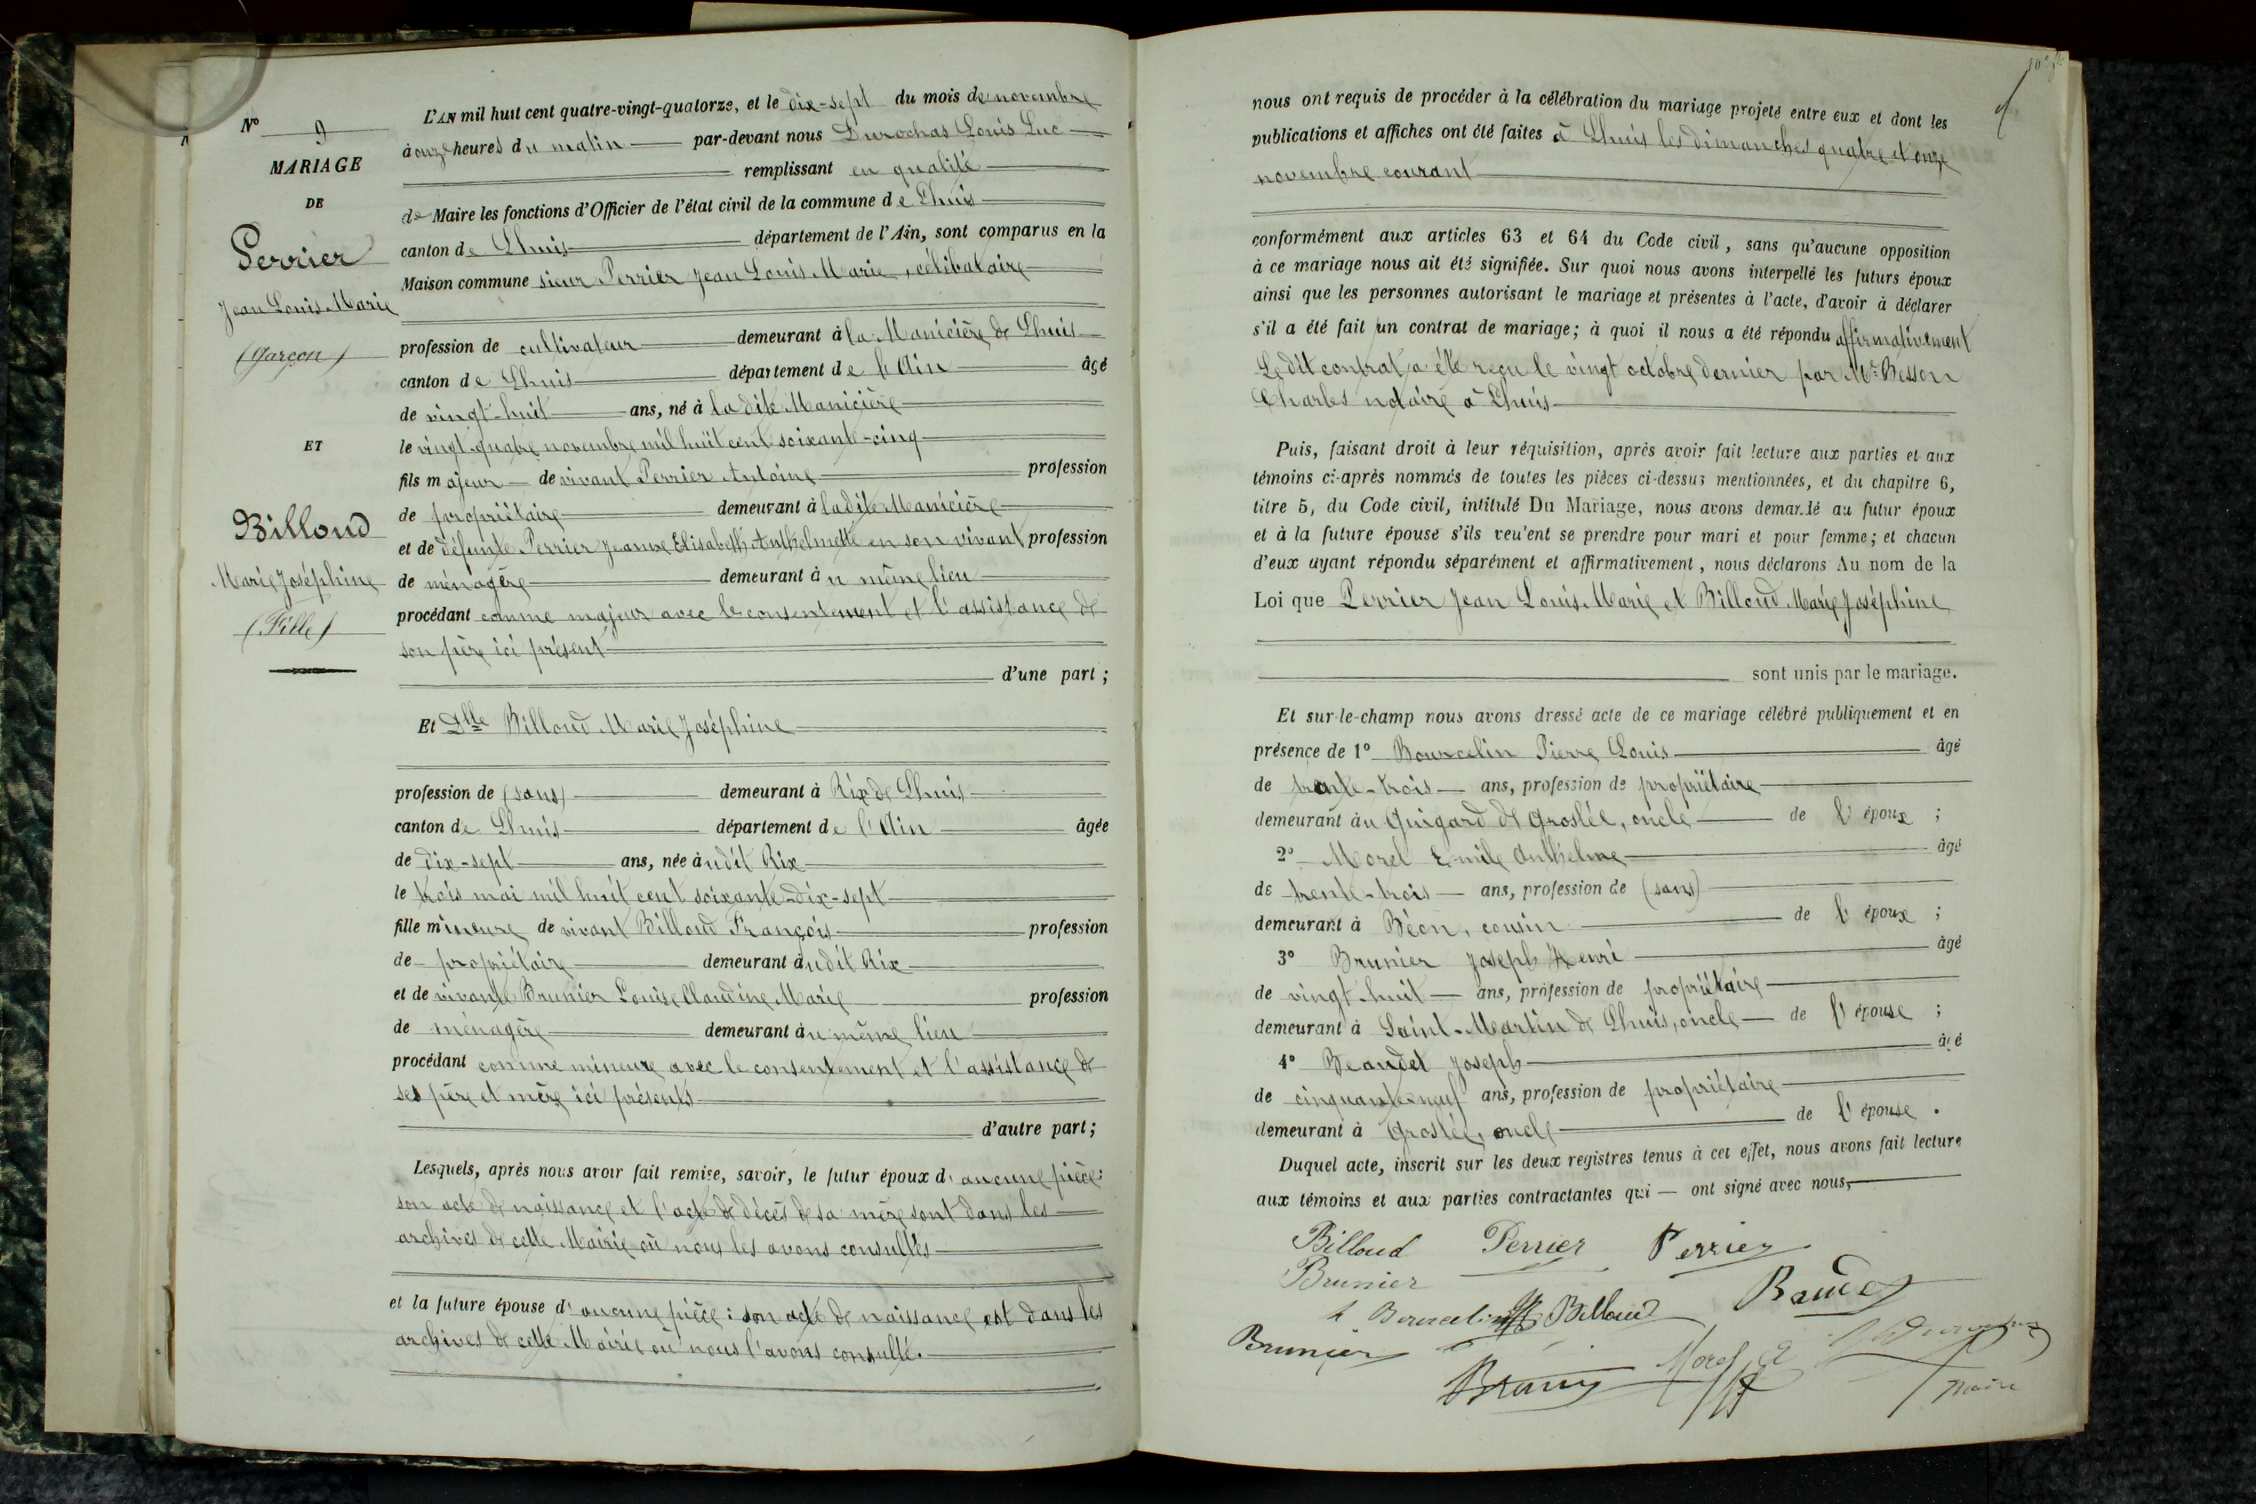 N° 9
MARIAGE
DE
Perrier
Jean Louis Marie
(Garçon)
ET
Billoud
Marie Joséphine
(Fille)
L'AN mil huit cent quatre-vingt-quatorze, et le dix-sept du mois de novembre
à onze heures du matin par-devant nous Durochas Louis Luc
remplissant en qualité
de Maire les fonctions d'Officier de l'état civil de la commune de Lhuis
canton de Lhuis département de l'Ain, sont comparus en la
Maison commune sieur Perrier Jean Louis Marie, célibataire
profession de cultivateur demeurant à la Manicière de Lhuis
canton de Lhuis département de l'Ain âgé
de vingt-huit ans, né à la dite Manicière
le vingt-quatre novembre mil huit cent soixante-cinq
fils majeur de vivant Perrier Antoine profession
de propriétaire demeurant à la dite Manicière
et de défunte Perrier Jeanne Elisabeth Anthelmette en son vivant profession
de ménagère demeurant au même lieu
procédant comme majeur avec le consentement et l'assistance de
son père ici présent
d'une part ;
Et Dlle Billoud Marie Joséphine
profession de (sans) demeurant à Rix de Lhuis
canton de Lhuis département de l'Ain âgée
de dix-sept ans, née audit Rix
le trois mai mil huit cent soixante-dix-sept
fille mineure de vivant Billoud François profession
de propriétaire demeurant audit Rix
et de vivante Brunier Louise Claudine Marie profession
de ménagère demeurant au même lieu
procédant comme mineure avec le consentement et l'assistance de
ses père et mère ici présents
d'autre part ;
Lesquels, après nous avoir fait remise, savoir, le futur époux d'aucune pièce:
son acte de naissance et l'acte de décès de sa mère sont dans les
archives de cette Mairie où nous les avons consultés
et la future épouse d'aucune pièce : son acte de naissance est dans les
archives de cette Mairie où nous l'avons consulté.
nous ont requis de procéder à la célébration du mariage projeté entre eux et dont les
publications et affiches ont été faites à Lhuis les dimanches quatre et onze
novembre courant
conformément aux articles 63 et 64 du Code civil, sans qu'aucune opposition
à ce mariage nous ait été signifiée. Sur quoi nous avons interpellé les futurs époux
ainsi que les personnes autorisant le mariage et présentes à l'acte, d'avoir à déclarer
s'il a été fait un contrat de mariage ; à quoi il nous a été répondu affirmativement
Le dit contrat a été reçu le vingt octobre dernier par Mr Besson
Charles notaire à Lhuis
Puis, faisant droit à leur réquisition, après avoir fait lecture aux parties et aux
témoins ci-après nommés de toutes les pièces ci-dessus mentionnées, et du chapitre 6,
titre 5, du Code civil, intitulé Du Mariage, nous avons demandé au futur époux
et à la future épouse s'ils veulent se prendre pour mari et pour femme ; et chacun
d'eux ayant répondu séparément et affirmativement, nous déclarons Au nom de la
Loi que Perrier Jean Louis Marie et Billoud Marie Joséphine
sont unis par le mariage.
Et sur-le-champ nous avons dressé acte de ce mariage célébré publiquement et en
présence de 1° Bourcelin Pierre Louis âgé
de trente-trois ans, profession de propriétaire
demeurant au Guigard de Groslée, oncle de l'époux ;
2° Morel Emile Anthelme âgé
de trente-trois ans, profession de (sans)
demeurant à Béon, cousin de l'époux ;
3° Brunier Joseph Henri âgé
de vingt-huit ans, profession de propriétaire
demeurant à Saint-Martin de Lhuis, oncle de l'épouse ;
4° Beaudet Joseph âgé
de cinquante-neuf ans, profession de propriétaire
demeurant à Groslée, oncle de l'épouse.
Duquel acte, inscrit sur les deux registres tenus à cet effet, nous avons fait lecture
aux témoins et aux parties contractantes qui — ont signé avec nous,
Billoud Perrier Perrier
Brunier
Bourcelin Billoud
Brunier
Morel E
Maire